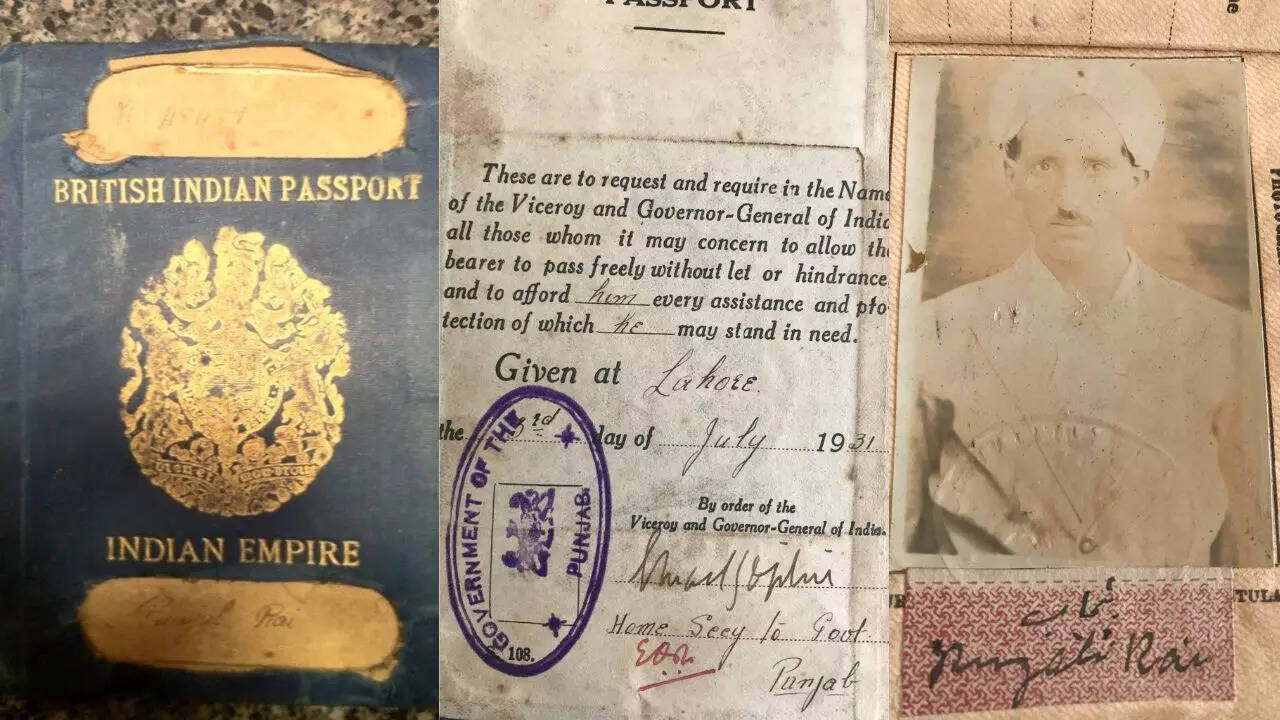 BRITISH INDIAN PASSPORT
INDIAN EMPIRE
Rai
PASSPORT
These are to request and require in the Name
of the Viceroy and Governor-General of India
all those whom it may concern to allow the
bearer to pass freely without let or hindrance
and to afford him every assistance and pro-
tection of which he may stand in need.
Given at Lahore.
the 3rd day of July 1931
By order of the
Viceroy and Governor-General of India.
Home Secy to Govt.
Punjab
GOVERNMENT OF THE
PUNJAB.
108.
Rai